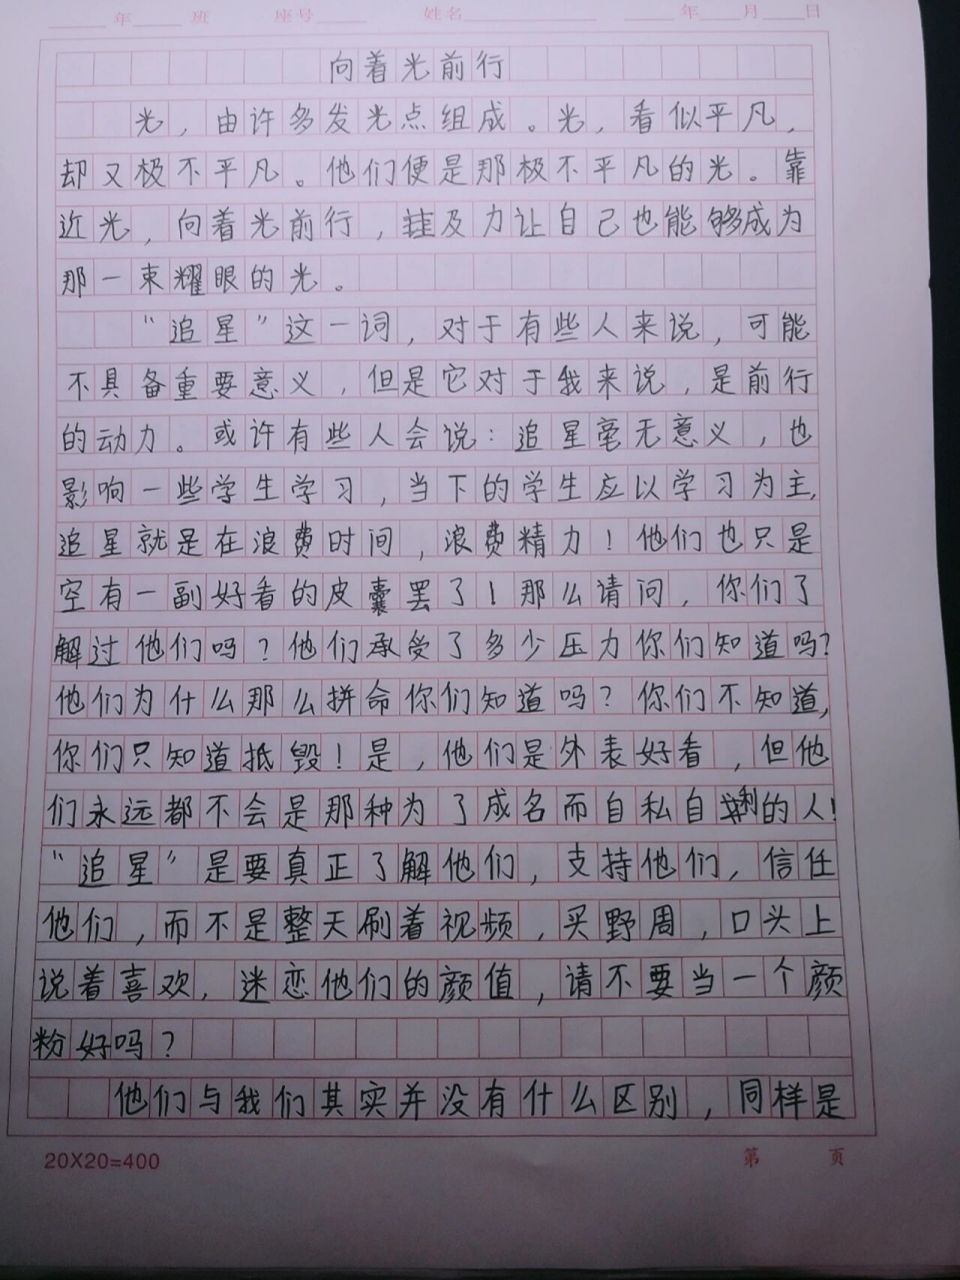 年 班 座号 姓名 年 月 日
向着光前行
光，由许多发光点组成。光，看似平凡，
却又极不平凡。他们便是那极不平凡的光。靠
近光，向着光前行，及力让自己也能够成为
那一束耀眼的光。
“追星”这一词，对于有些人来说，可能
不具备重要意义，但是它对于我来说，是前行
的动力。或许有些人会说：追星毫无意义，也
影响一些学生学习，当下的学生应以学习为主，
追星就是在浪费时间，浪费精力！他们也只是
空有一副好看的皮囊罢了！那么请问，你们了
解过他们吗？他们承受了多少压力你们知道吗？
他们为什么那么拼命你们知道吗？你们不知道，
你们只知道抵毁！是，他们是外表好看，但他
们永远都不会是那种为了成名而自私自利的人！
“追星”是要真正了解他们，支持他们，信任
他们，而不是整天刷着视频，买野周，口头上
说着喜欢，迷恋他们的颜值，请不要当一个颜
粉好吗？
他们与我们其实并没有什么区别，同样是
20X20=400 第 页